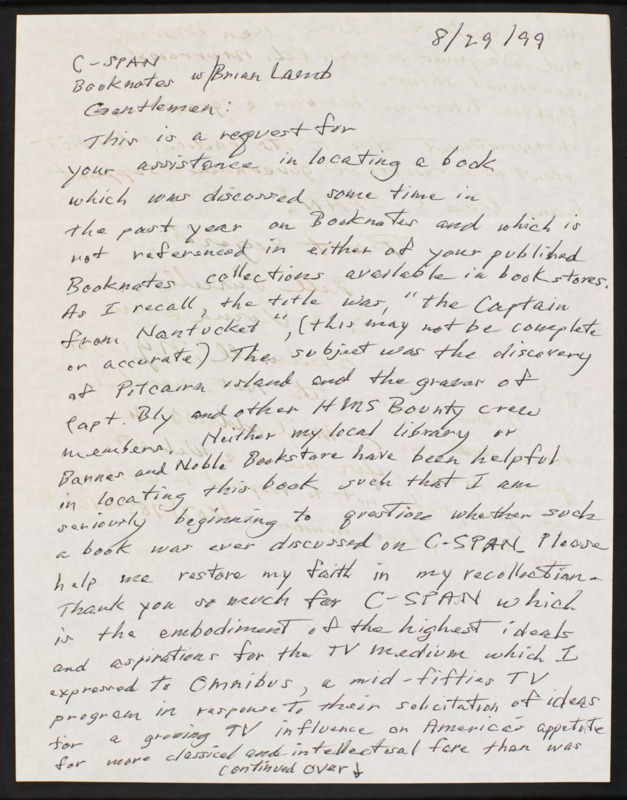 8/29/99
C-SPAN
Booknotes w/Brian Lamb
Gentlemen:
This is a request for
your assistance in locating a book
which was discussed some time in
the past year on Booknotes and which is
not referenced in either of your published
Booknotes collections available in bookstores.
As I recall, the title was, "the Captain
from Nantucket", (this may not be complete
or accurate) The subject was the discovery
of Pitcairn island and the graves of
Capt. Bly and other HMS Bounty crew
members. Neither my local library or
Barnes and Noble Bookstore have been helpful
in locating this book such that I am
seriously beginning to question whether such
a book was ever discussed on C-SPAN. Please
help me restore my faith in my recollection.
Thank you so much for C-SPAN which
is the embodiment of the highest ideals
and aspirations for the TV medium which I
expressed to Omnibus, a mid-fifties TV
program in response to their solicitation of ideas
for a growing TV influence on America's appetite
for more classical and intellectual fare than was
continued over ↓